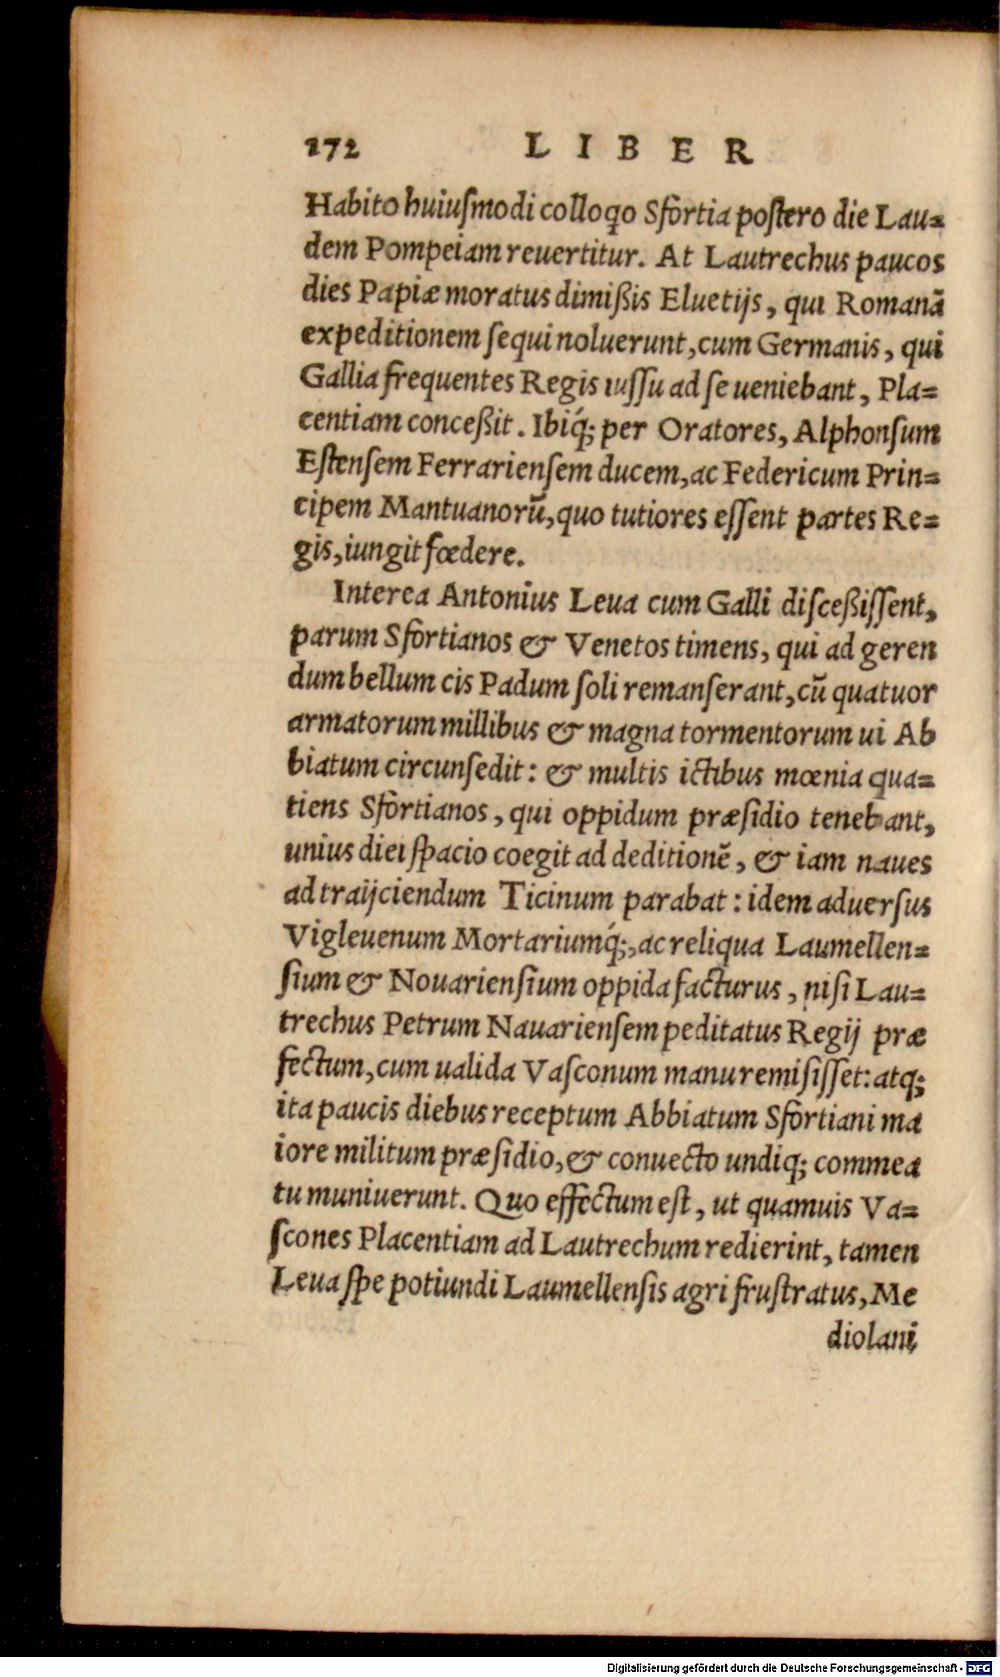 172 LIBER
Habito huiuſmodi colloqo Sfortia poſtero die Lau=
dem Pompeiam reuertitur. At Lautrechus paucos
dies Papiæ moratus dimißis Eluetijs, qui Romanā
expeditionem ſequi noluerunt, cum Germanis, qui
Gallia frequentes Regis iuſſu ad ſe ueniebant, Pla=
centiam conceßit. Ibiq́; per Oratores, Alphonſum
Eſtenſem Ferrarienſem ducem, ac Federicum Prin=
cipem Mantuanorū, quo tutiores eſſent partes Re=
gis, iungit fœdere.
Interea Antonius Leua cum Galli diſceßiſſent,
parum Sfortianos & Venetos timens, qui ad geren
dum bellum cis Padum ſoli remanſerant, cū quatuor
armatorum millibus & magna tormentorum ui Ab
biatum circunſedit: & multis ictibus mœnia qua=
tiens Sfortianos, qui oppidum præſidio tenebant,
unius diei ſpacio coegit ad deditionē, & iam naues
ad traijciendum Ticinum parabat: idem aduerſus
Vigleuenum Mortariumq́;, ac reliqua Laumellen=
ſium & Nouarienſium oppida facturus, niſi Lau=
trechus Petrum Nauarienſem peditatus Regij præ
fectum, cum ualida Vaſconum manu remiſiſſet: atq;
ita paucis diebus receptum Abbiatum Sfortiani ma
iore militum præſidio, & conuecto undiq; commea
tu muniuerunt. Quo effectum eſt, ut quamuis Va=
ſcones Placentiam ad Lautrechum redierint, tamen
Leua ſpe potiundi Laumellenſis agri fruſtratus, Me
diolani
Digitalisierung gefördert durch die Deutsche Forschungsgemeinschaft - DFG